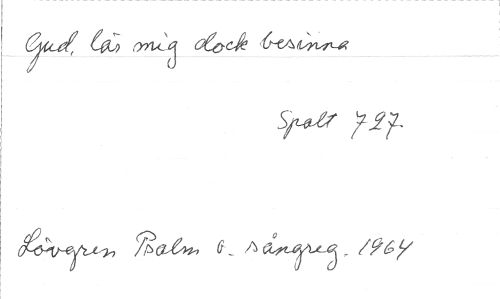 Gud, lär mig dock besinna
Spalt 727.
Lövgren Psalm o. sångreg. 1964